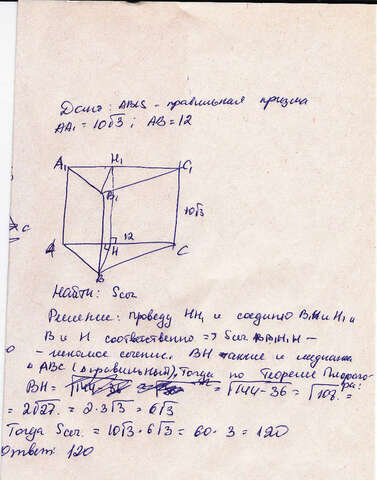 Дано: ABCS - правильная призма
AA₁ = 10√3 ; AB = 12
A₁
H₁
C₁
B₁
10√3
12
A
H
C
B
Найти: Sсеч
Решение: проведу HH₁ и соединю B₁ и H₁ и
B и H соответственно => Sсеч BB₁H₁H -
- искомое сечение. BH - также и медиана
ABC (правильный). Тогда по Теореме Пифагора:
BH = √144-36 = √108 =
= 2√27 = 2·3√3 = 6√3
Тогда Sсеч. = 10√3 · 6√3 = 60 · 3 = 120
Ответ: 120